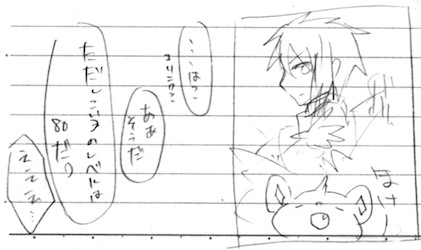 ほけ
…はっ?
コリンク?
ああ
そうだ
ただしこいつのレベルは
80だ
えええ…